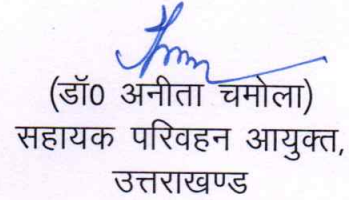 (डॉ0 अनीता चमोला)
सहायक परिवहन आयुक्त,
उत्तराखण्ड